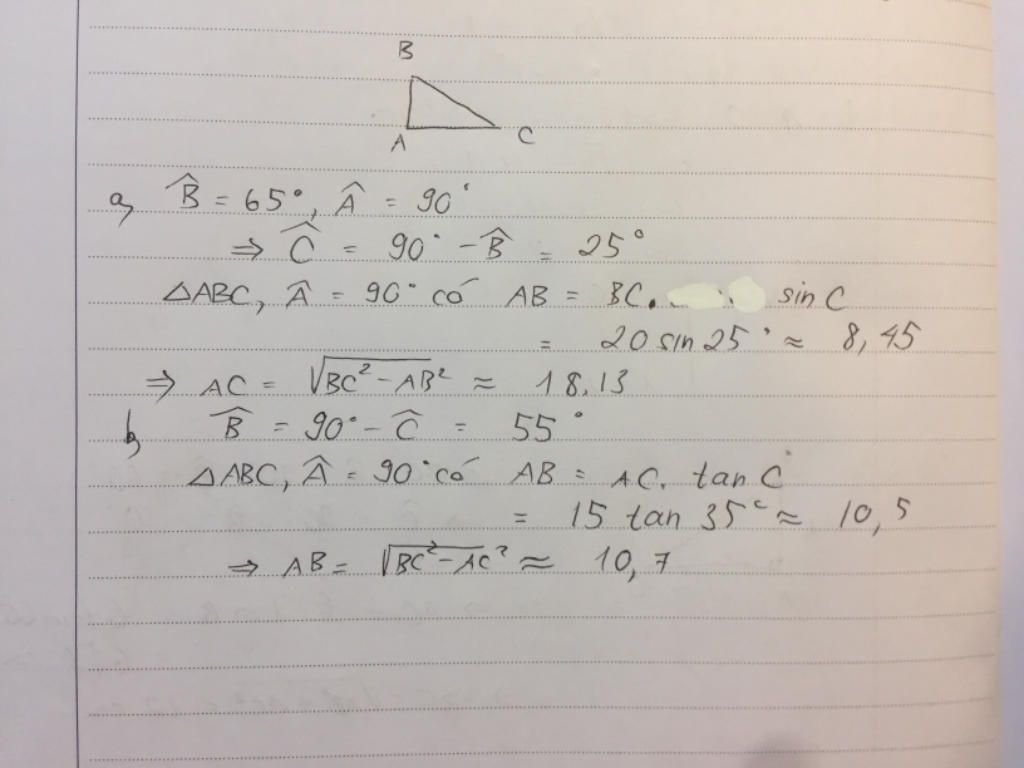 B
A C
a, B̂ = 65°, Â = 90°
⇒ Ĉ = 90° - B̂ = 25°
△ABC, Â = 90° có AB = BC. sin C
= 20 sin 25° ≈ 8,45
⇒ AC = √(BC² - AB²) ≈ 18,13
b, B̂ = 90° - Ĉ = 55°
△ABC, Â = 90° có AB = AC. tan C
= 15 tan 35° ≈ 10,5
⇒ AB = √(BC² - AC²) ≈ 10,7